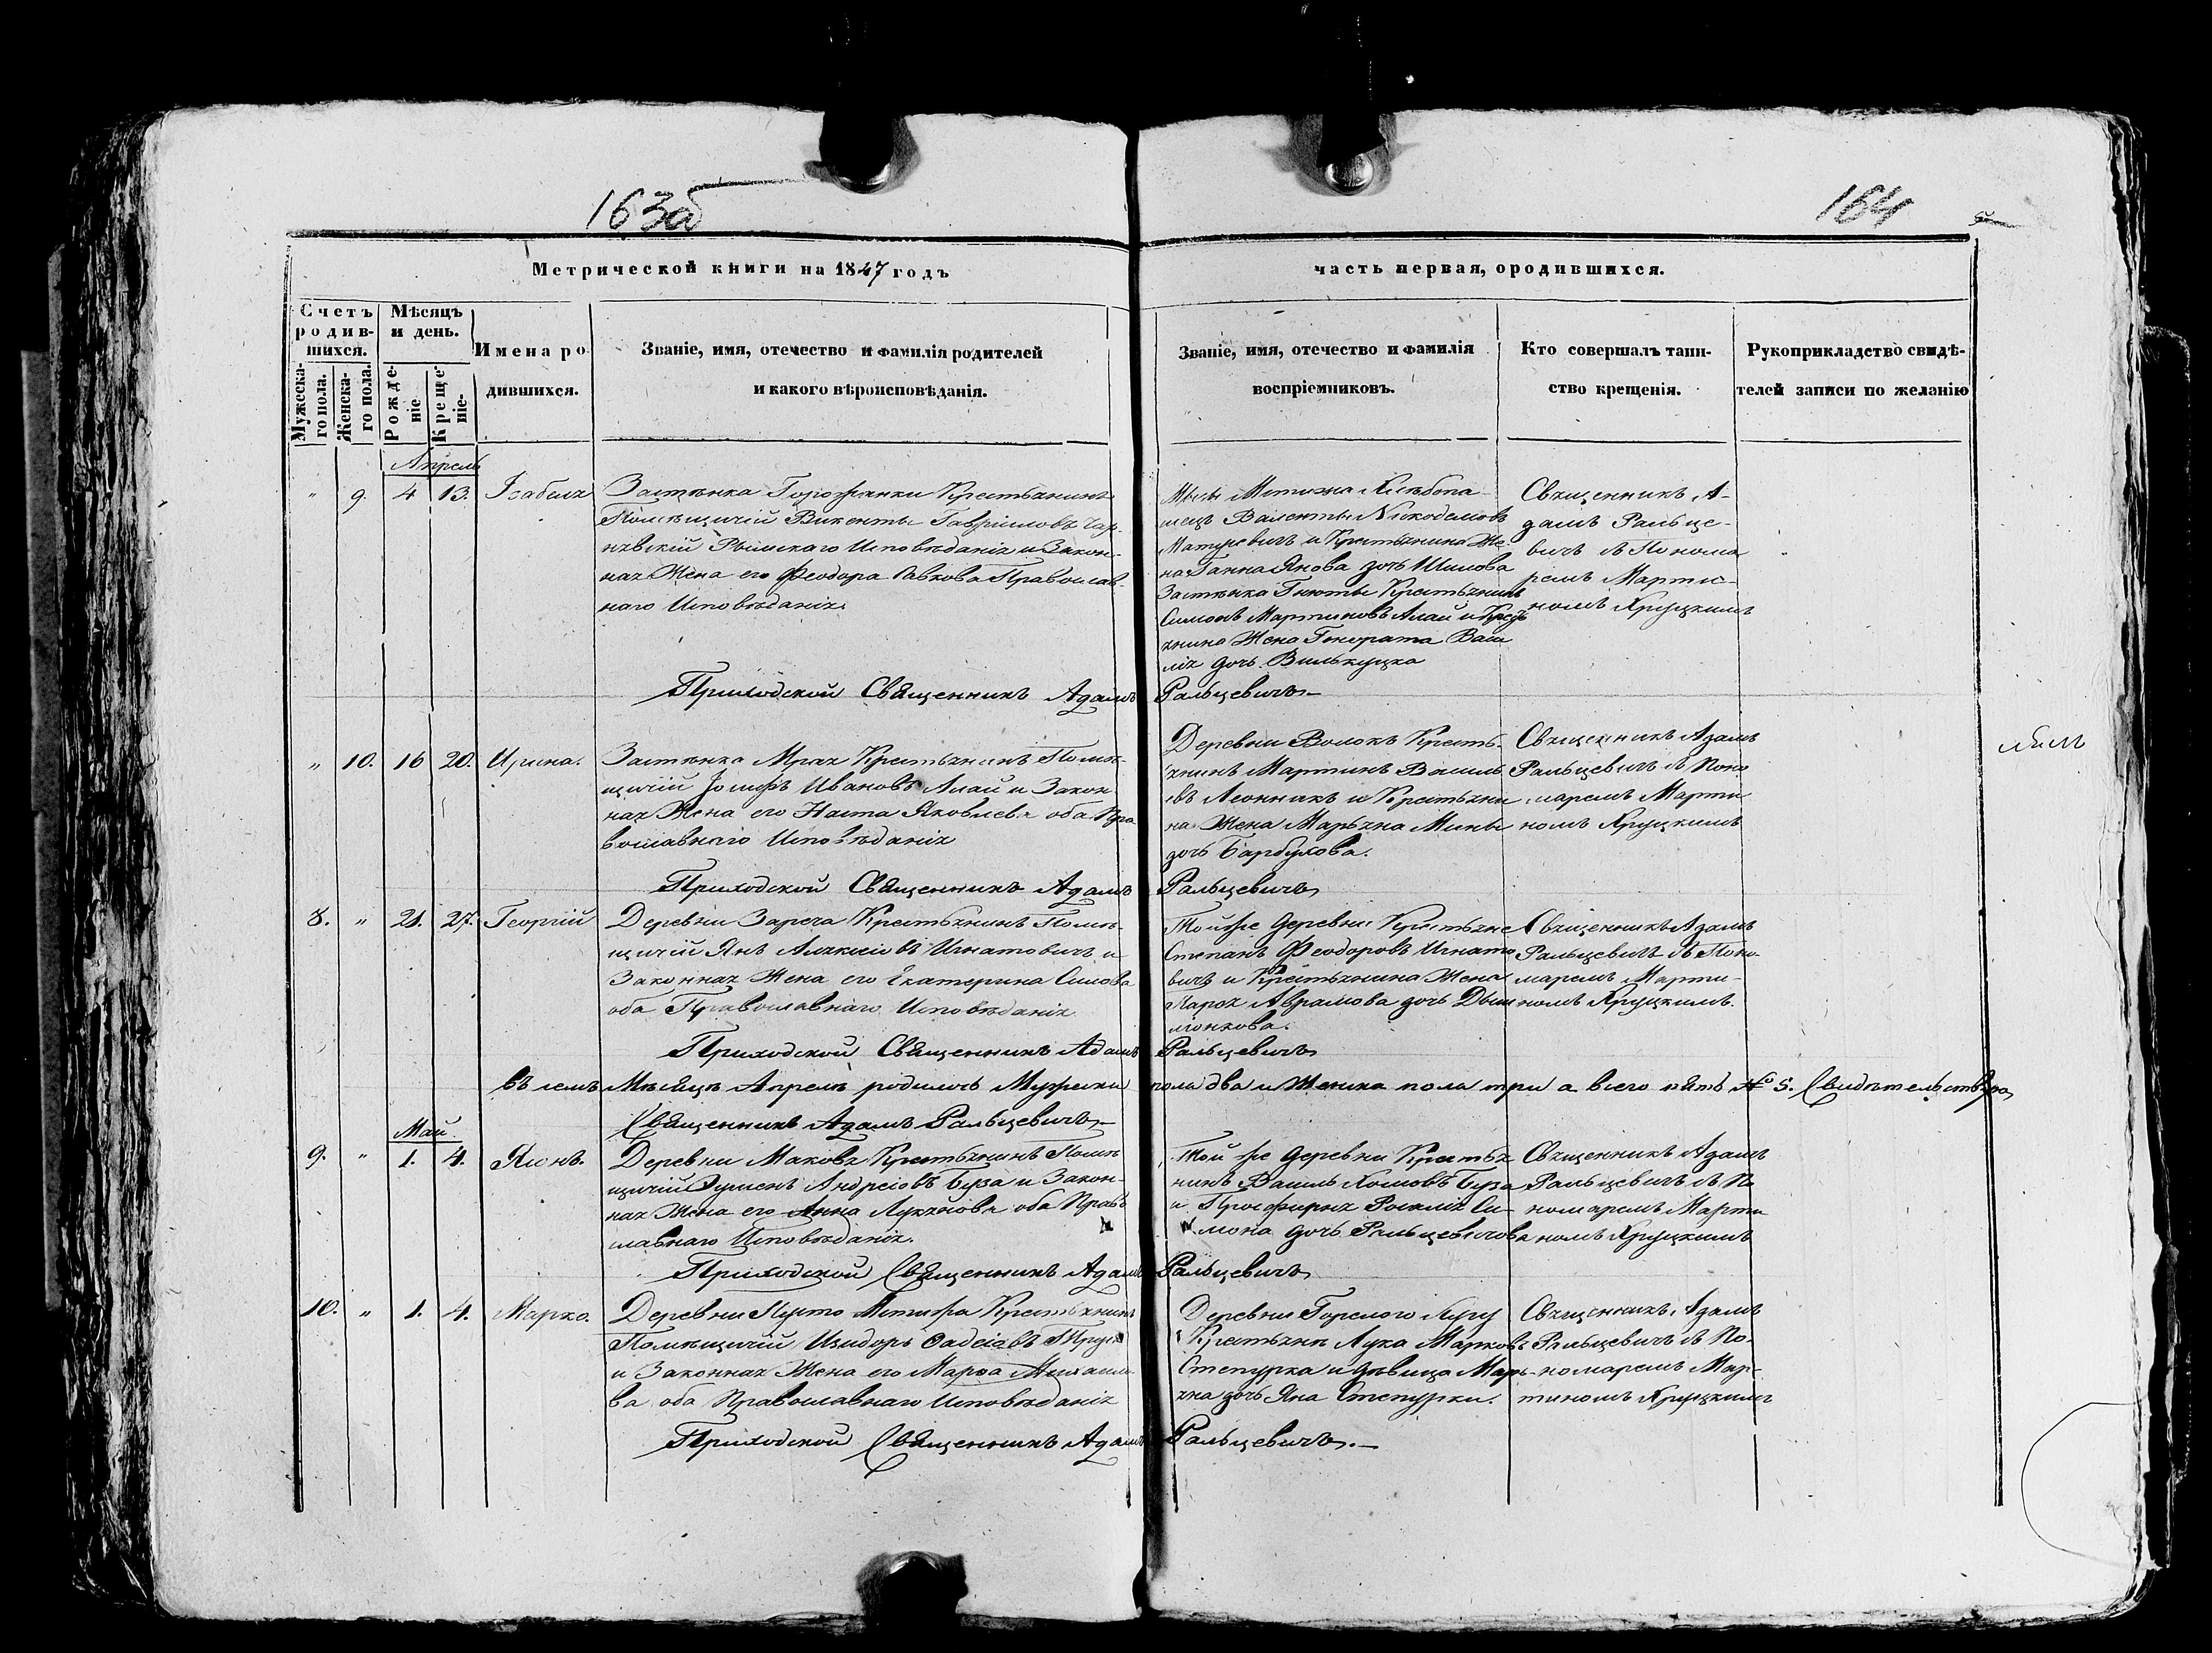 163об
164
Метрической книги на 1847 годъ
часть первая, ородившихся.
Счетъ родив-шихся.
Мужеска-го пола.
Женска-го пола.
Мѣсяцъ и день.
Рожде-ніе
Креще-ніе.
Имена ро-
дившихся.
Званіе, имя, отечество и фамилія родителей
и какого вѣроисповѣданія.
Званіе, имя, отечество и фамилія
воспріемниковъ.
Кто совершалъ таин-
ство крещенія.
Рукоприкладство свидѣ-
телей записи по желанію
Апрель
" 9. 4 13. Ізабеля
Застѣнка Горожанки Крестьянинъ
Помѣщичій Викенты Гавріиловъ
Римскаго Исповѣданія и Закон-
ная Жена его Феодора Савкова Православ-
наго Исповѣданія.
Валенты Никодемовъ
Матусевичъ и Крестьянина Же-
на Ганна Янова дочь Шилова
Застѣнка Гнюты Крестьянинъ
Симонъ Мартиновъ Алай и Крест
янина Жена Гонората Васи
лія дочь Вилькуцка
Священникъ А-
дамъ Ральце-
вичъ съ Понома
ремъ Марти-
номъ Круцкимъ
Приходской Священникъ Адамъ Ральцевичъ
" 10. 16 20. Ирина.
Застѣнка Мрая Крестьянинъ Помѣ-
щичій Іосифъ Ивановъ Алай и Закон
ная Жена его Наста Яковлева оба Пра
вославнаго Исповѣданія
Деревни Волокъ Кресть-
янинъ Мартинъ Василь
евъ Леоникъ и Крестьяни
на Жена Марьяна Мины
дочь Барбухова.
Священникъ Адамъ
Ральцевичъ съ Поно
маремъ Марти
номъ Круцкимъ
Приходской Священникъ Адамъ Ральцевичъ
8. " 21. 27. Георгій
Деревни Зареча Крестьянинъ Помѣ-
щичій Янъ Алексіевъ Игнатовичъ и
Законная Жена его Екатерина Симова
оба Православнаго Исповѣданія
Той же деревни Крестьяне
Степанъ Феодоровъ Игнато
вичъ и Крестьянина Жена
Аврамова дочь Дыш
люнкова.
Священникъ Адамъ
Ральцевичъ съ Поно
маремъ Марти-
номъ Круцкимъ.
Приходской Священникъ Адамъ Ральцевичъ
Въ семъ Мѣсяцѣ Апрелѣ родилось Мужеска пола два и Женска пола три а всего пять № 5. Свидѣтельствую
Священникъ Адамъ Ральцевичъ
Май
9. " 1. 4. Ясонъ.
Деревни Макова Крестьянинъ Помѣ
щичій Андреіовъ Буза и Закон-
ная Жена его Анна Лукянова оба Право
славнаго Исповѣданія.
Той же деревни Крестья
нинъ Василь Хомовъ Буза
и Просфирня Розалія Си-
мона дочь Ральцевичова
Священникъ Адамъ
Ральцевичъ съ По
номаремъ Марти
номъ Круцкимъ
Приходской Священникъ Адамъ Ральцевичъ
10. " 1. 4. Марко.
Деревни Мстижа Крестьянинъ
Помѣщичій Изидоръ Фадеіовъ
и Законная Жена его Марфа Михаило
ва оба Православнаго Исповѣданія
Деревни Горелого Лугу
Крестьяне Лука Марковъ
Степурка и дѣвица Марь-
яна дочь Яна Степурки.
Священникъ Адамъ
Ральцевичъ съ По-
номаремъ Мар-
тиномъ Круцкимъ
Приходской Священникъ Адамъ Ральцевичъ.